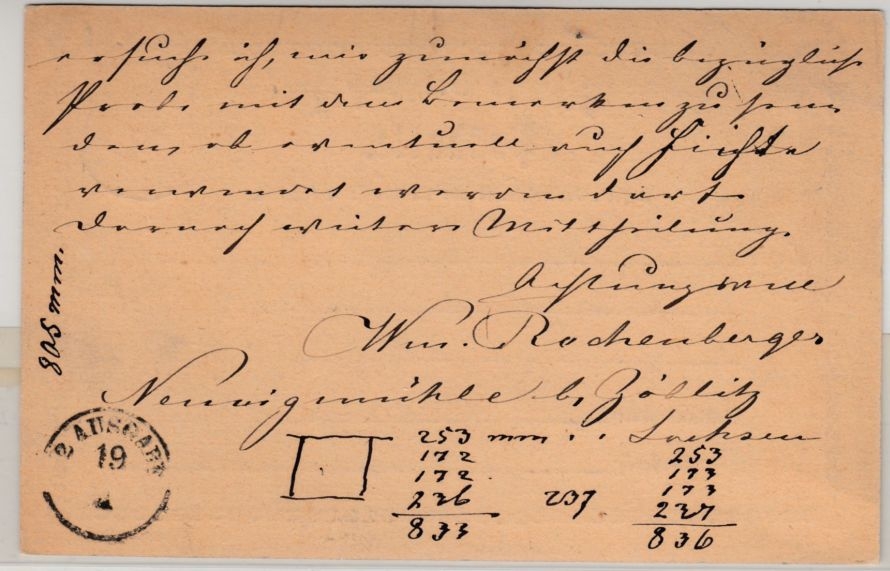 ersuche ich, mir zunächst die bezügliche
Probe mit dem Bemerken zu sen-
den, ob eventuell auch Fichte
verwendet werden darf.
Darnach weitere Mittheilung.
Achtungsvoll
Wm. Rochenberger
b. Zöblitz
Sachsen
805 mm.
2 AUSGABE
19
253 mm
172
172
236
833
237
253
173
173
237
836